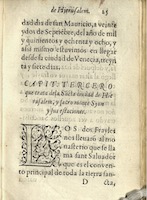 de Hierusalem. 25
dad dia de san Mauricio, a veinte
y dos de Septiẽbre, del año de mil
y quinientos y ochenta y ocho, y
assi mismo estuvimos en llegar
desde la ciudad de Venecia, treyn
ta y siete dias.
CAPIT. TERCERO
que trata de la Sãcta ciudad de Hie
rusalem, y sacro monte Syon
y sus estaciones.
LOS dos Frayles
nos llevaron al mo
nasterio que se lla
ma sant Salvador
que es el conven-
to principal de toda la tierra san-
D cta,